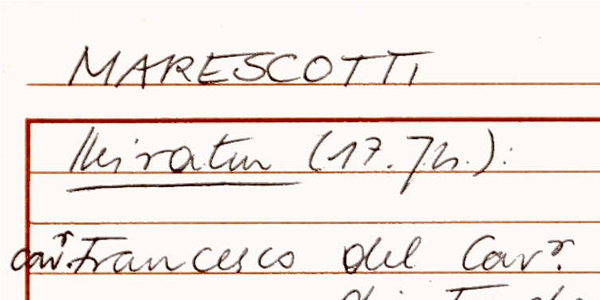 MARESCOTTI
Heiratun (17. Jh.):
cavr. Francesco del Cavr.